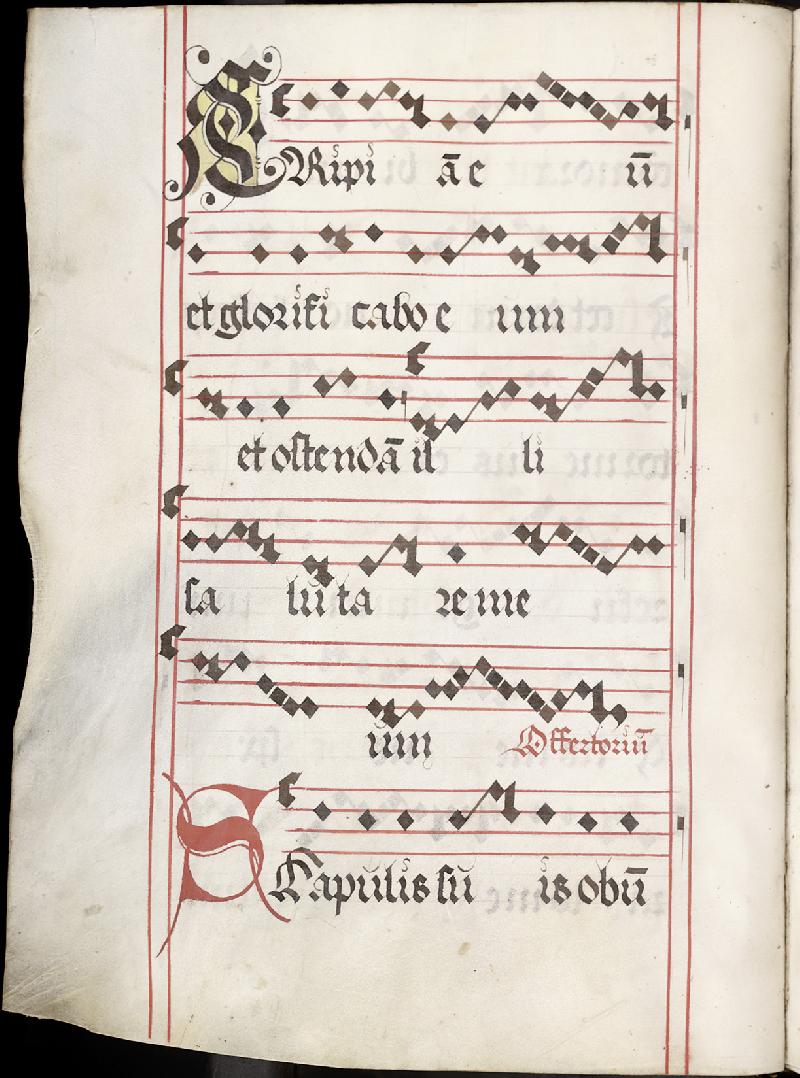 ERipi ā e ū
et glorifi cabo e um
et ostendā il li
sa lu ta re me
um Offertoriū
SCapulis su is obū